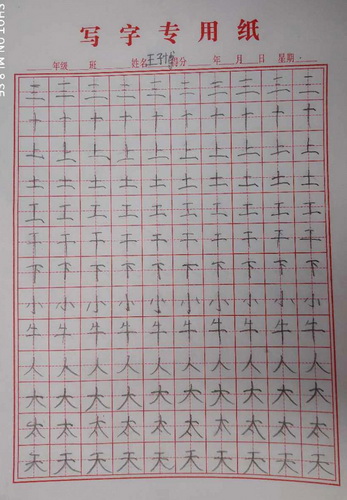 SHOT ON MI 8 SE
写字专用纸
年级 班 姓名 王子 得分 年 月 日 星期
三 三 三 三 三 三 三 三 三 三
十 十 十 十 十 十 十 十 十 十
上 上 上 上 上 上 上 上 上 上
土 土 土 土 土 土 土 土 土 土
工 工 工 工 工 工 工 工 工 工
干 干 干 干 干 干 干 干 干 干
下 下 下 下 下 下 下 下 下 下
小 小 小 小 小 小 小 小 小 小
牛 牛 牛 牛 牛 牛 牛 牛 牛 牛
人 人 人 人 人 人 人 人 人 人
大 大 大 大 大 大 大 大 大 大
太 太 太 太 太 太 太 太 太 太
天 天 天 天 天 天 天 天 天 天